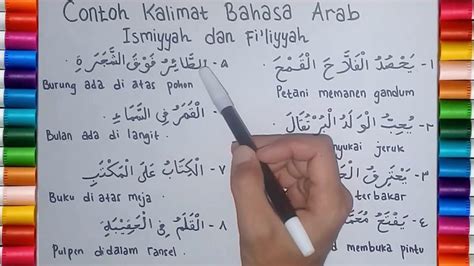 Contoh Kalimat Bahasa Arab
Ismiyyah dan Fi'liyyah
١- يَحْصُدُ الْفَلَّاحُ الْقَمْحَ
Petani memanen gandum
٢- يُحِبُّ الْوَلَدُ الْبُرْتُقَالَ
nyukai jeruk
٣- يَحْتَرِقُ
terbakar
٤- يَفْتَحُ
membuka pintu
٥- الطَّائِرُ فَوْقَ الشَّجَرَةِ
Burung ada di atas pohon
الْقَمَرُ فِي السَّمَاءِ
Bulan ada di langit.
٧- الْكِتَابُ عَلَى الْمَكْتَبِ
Buku di atas meja
٨- الْقَلَمُ فِي الْحَقِيْبَةِ
Pulpen didalam ransel.